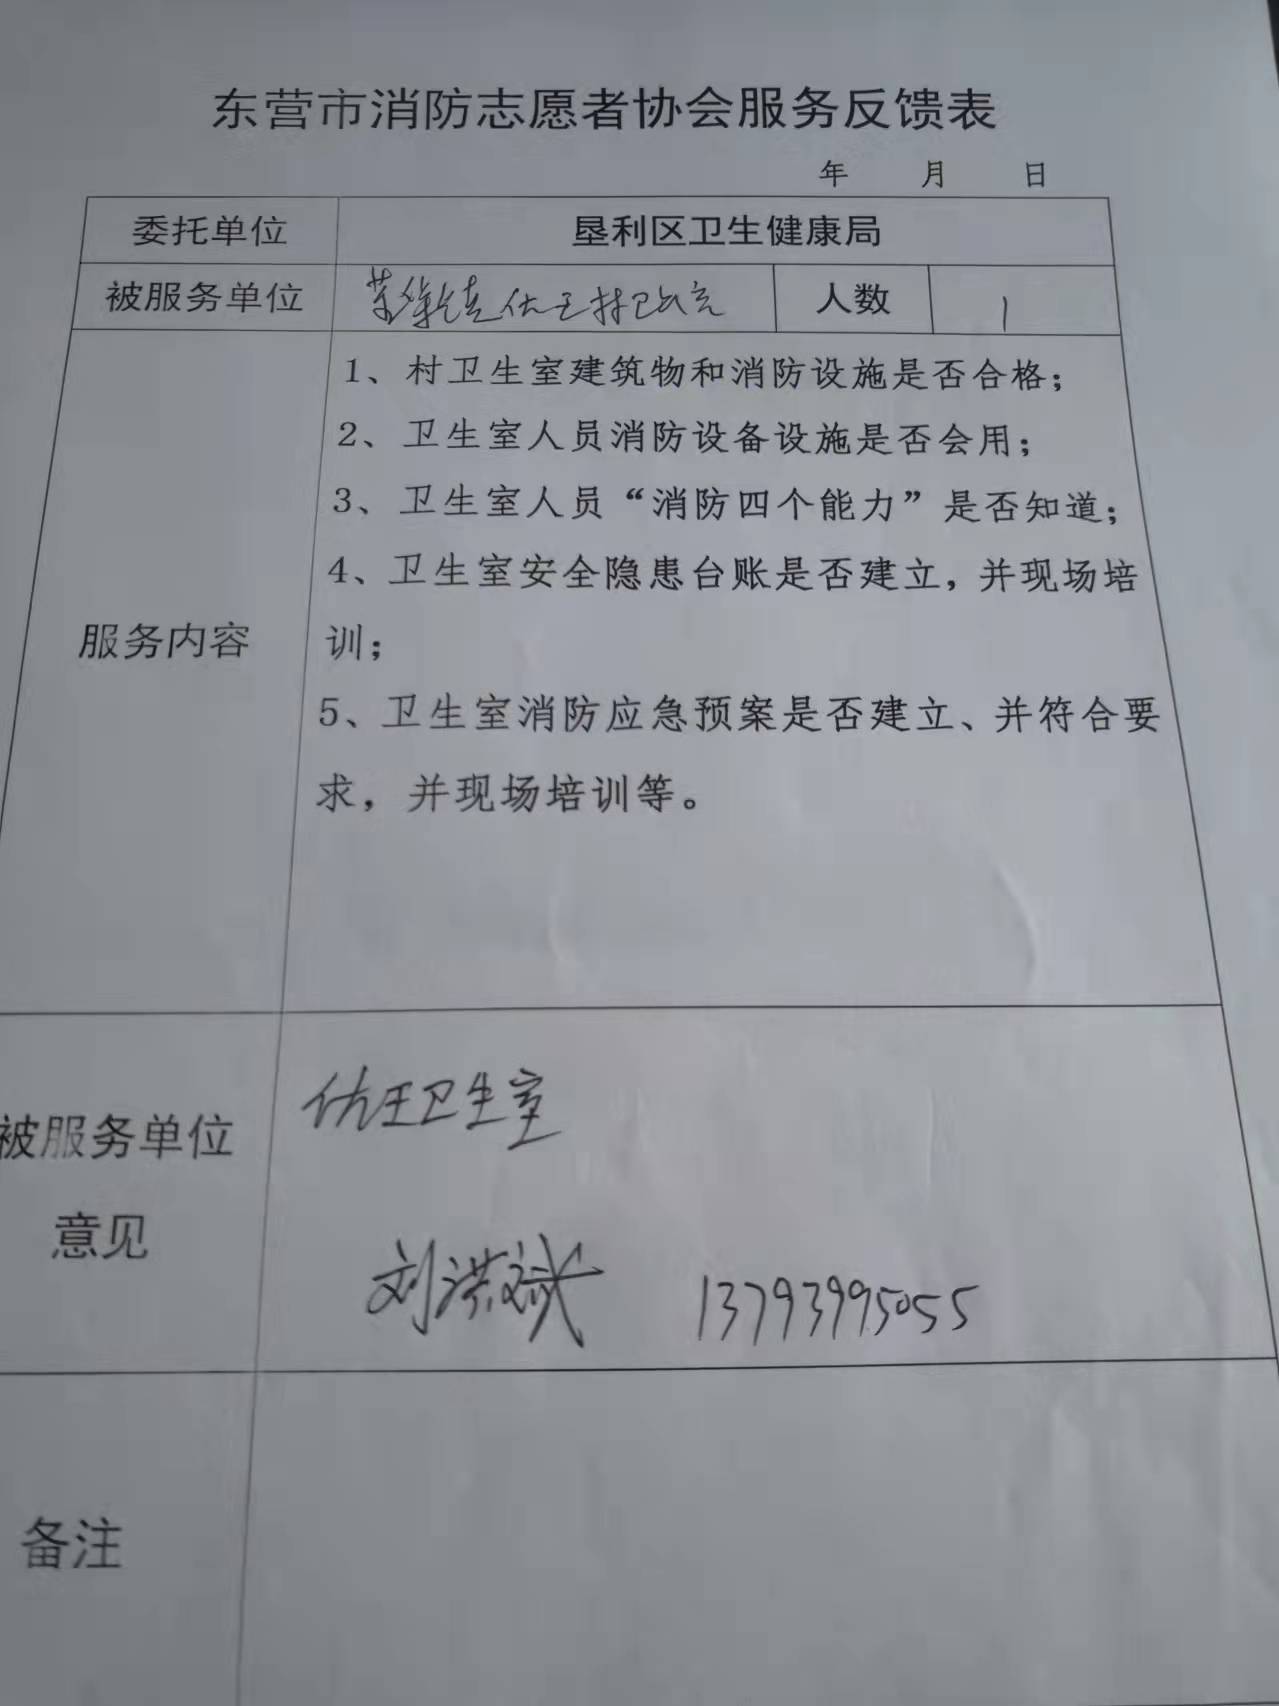 东营市消防志愿者协会服务反馈表
年 月 日
委托单位 垦利区卫生健康局
被服务单位 村卫生室 人数 1
1、村卫生室建筑物和消防设施是否合格；
2、卫生室人员消防设备设施是否会用；
3、卫生室人员“消防四个能力”是否知道；
4、卫生室安全隐患台账是否建立，并现场培
服务内容 训；
5、卫生室消防应急预案是否建立、并符合要
求，并现场培训等。
被服务单位 王卫生室
意见 刘洪斌 13793995055
备注